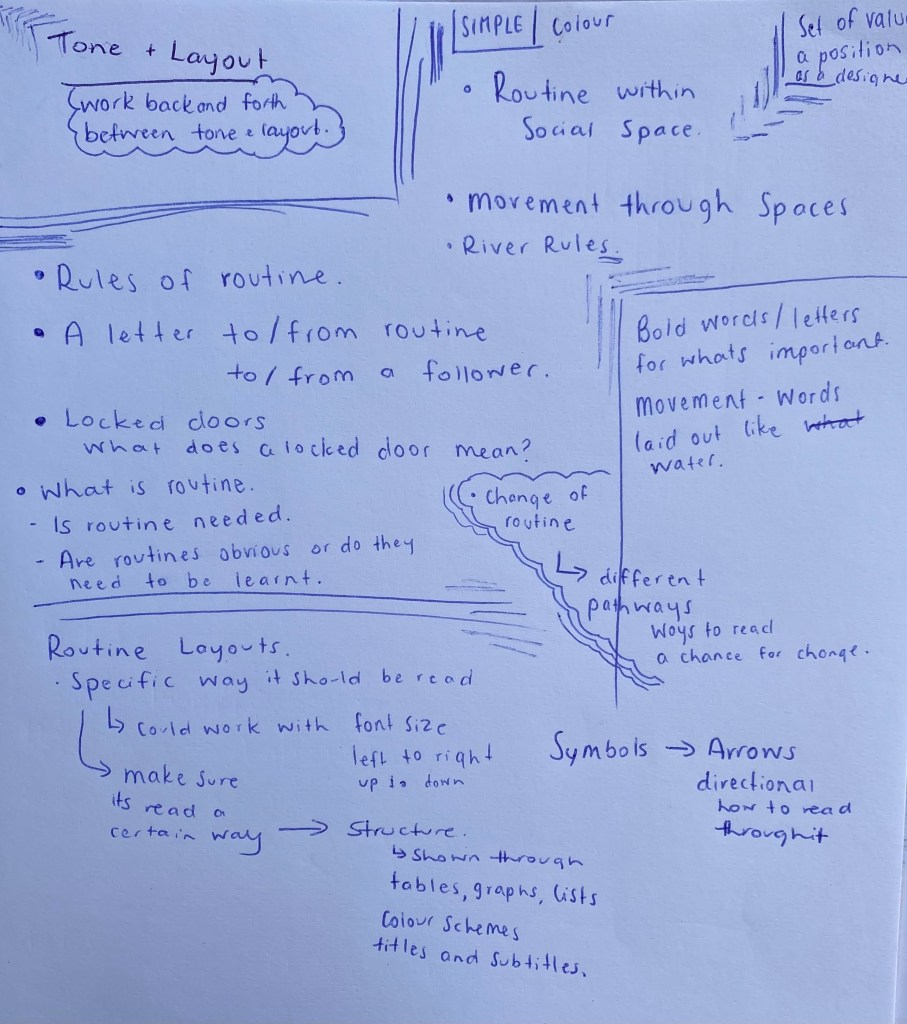 Tone + Layout
work back and forth
between tone & layout.
SIMPLE Colour
• Routine within
Social Space.
• movement through Spaces
• River Rules.
Set of valu
a position
as a designe
• Rules of routine.
• A letter to/from routine
to/from a follower.
• Locked doors
What does a locked door mean?
• What is routine.
- Is routine needed.
- Are routines obvious or do they
need to be learnt.
Bold words/letters
for whats important.
movement - words
laid out like what
water.
• Change of
routine
↳ different
pathways
Ways to read
a chance for change.
Routine Layouts.
• Specific way it should be read
↳ Could work with font size
left to right
up to down
↳ make sure
its read a
certain way → Structure.
↳ Shown through
tables, graphs, lists
Colour Schemes
titles and Subtitles.
Symbols → Arrows
directional
how to read
throughit